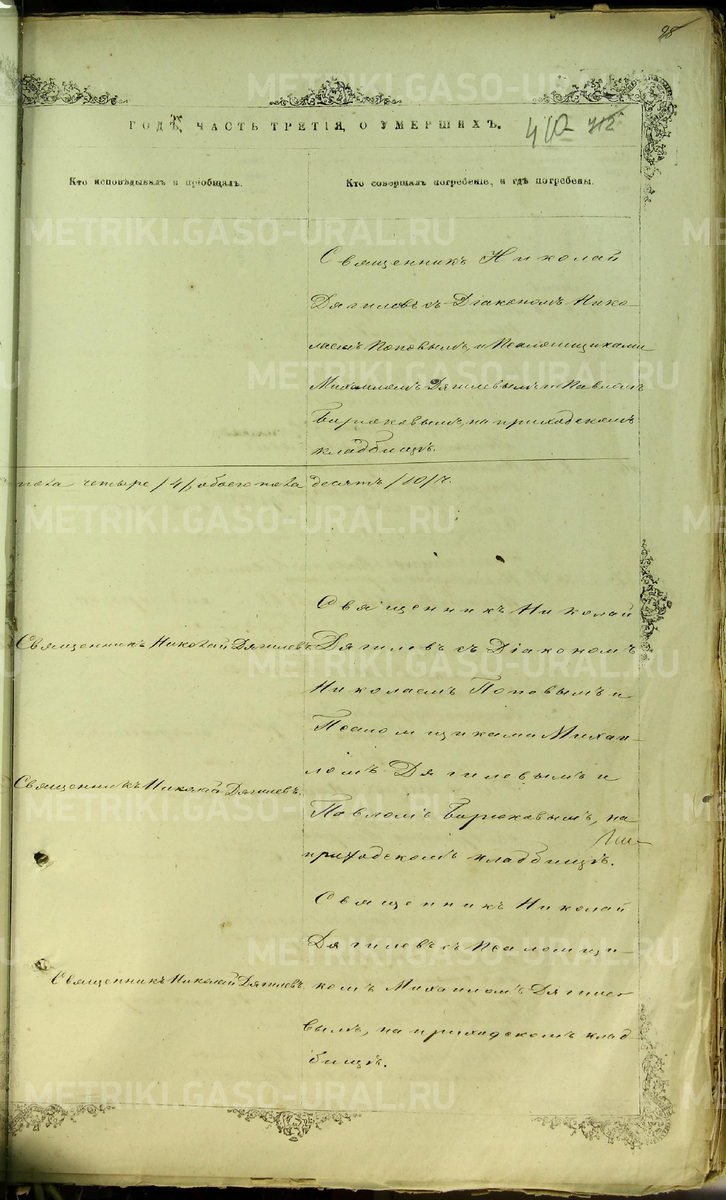 98
METRIKI.GASO-URAL.RU
ГОДѢ, ЧАСТЬ ТРЕТІЯ, О УМЕРШИХЪ.
402 712
Кто исповѣдывалъ и пріобщалъ.
Кто совершалъ погребеніе, и гдѣ погребены.
Священникъ Николай
Дягилевъ съ Діакономъ Нико-
лаемъ Поповымъ, и Псаломщиками
Михаиломъ Дягилевымъ и Павломъ
Бирюковымъ, на приходскомъ
кладбищѣ.
пола четыре /4/, обоего пола десять /10/ ч.
Священникъ Николай
Священникъ Николай Дягилевъ
Дягилевъ съ Діакономъ
Николаемъ Поповымъ и
Псаломщиками Михаи-
ломъ Дягилевымъ и
Священникъ Николай Дягилевъ.
Павломъ Бирюковымъ, на
приходскомъ кладбищѣ.
Священникъ Николай
Дягилевъ съ Псаломщи-
Священникъ Николай Дягилевъ.
комъ Михаиломъ Дягиле-
вымъ, на приходскомъ клад
бищѣ.